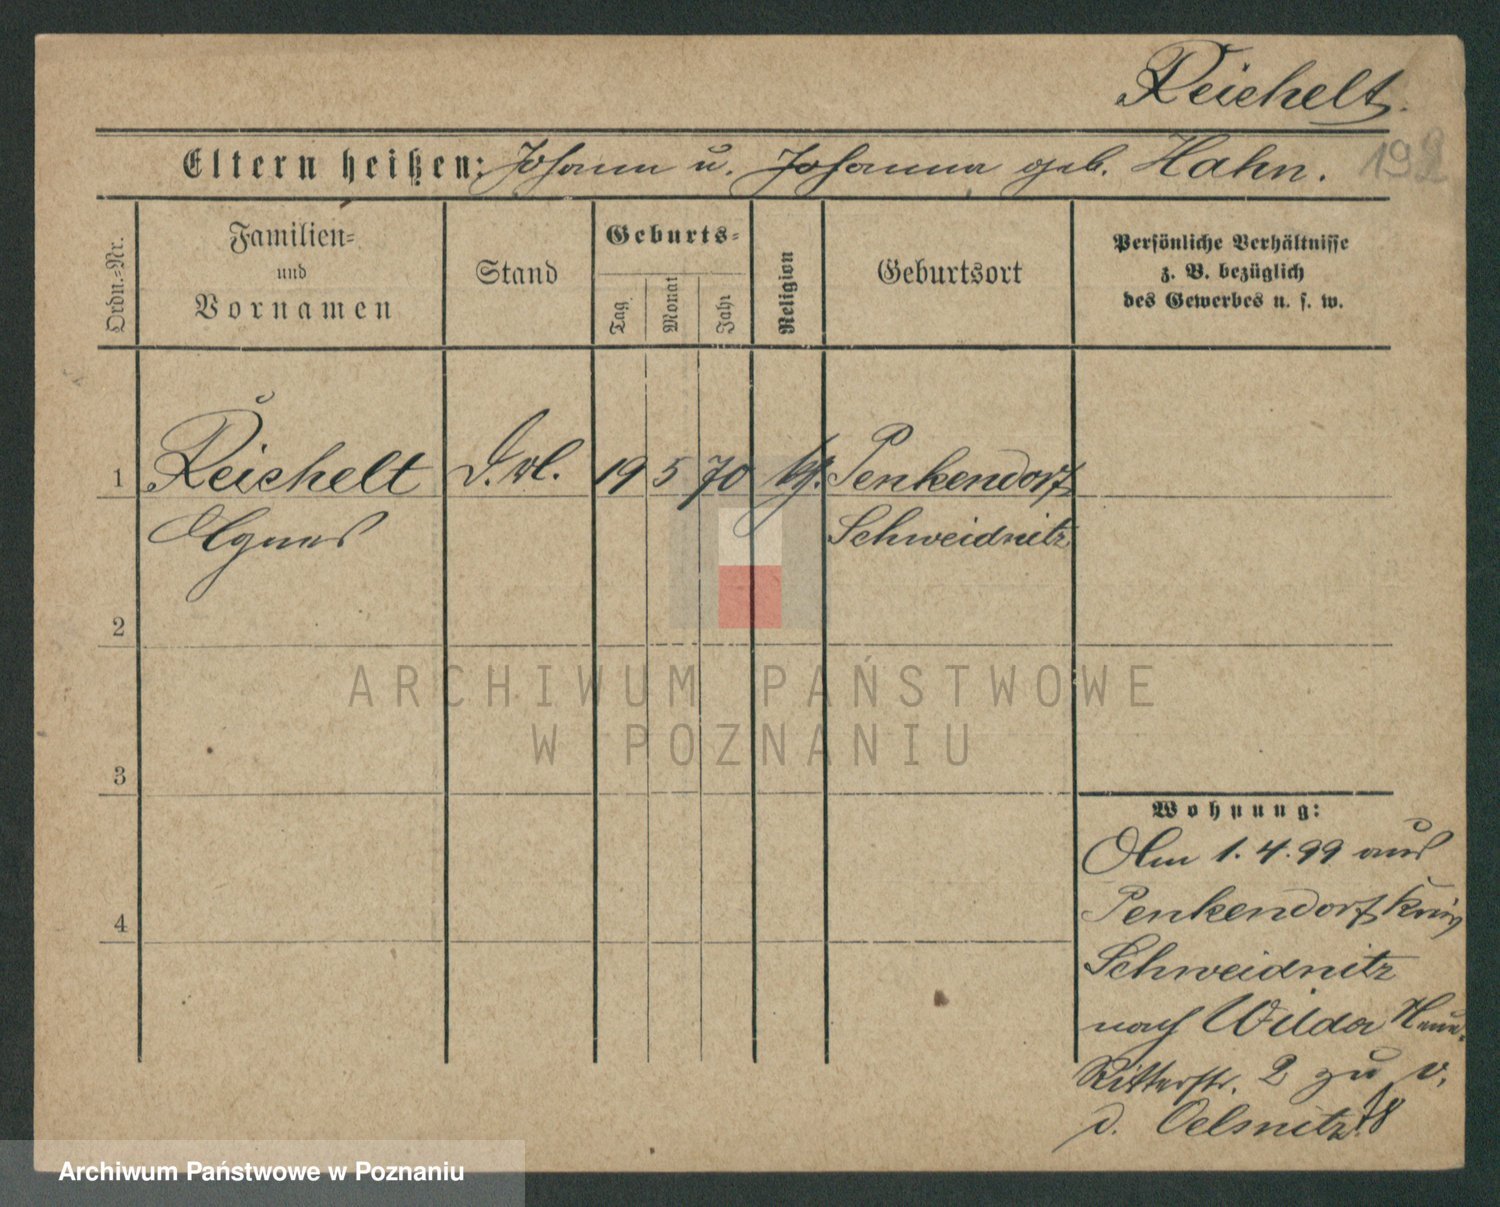 Reichelt.
Eltern heißen: Johann u. Johanna geb. Hahn.
192
Ordn.-Nr.
Familien-
und
Vornamen
Stand
Geburts-
Tag
Monat
Jahr
Religion
Geburtsort
Persönliche Verhältnisse
z. B. bezüglich
des Gewerbes u. s. w.
1 Reichelt 19 5 70 Penkendorf
Agnes Schweidnitz
2
ARCHIWUM PAŃSTWOWE
W POZNANIU
3
Wohnung:
Am 1.4.99 aus
4
Penkendorf Kreis
Schweidnitz
nach Wilda
Ritterstr. 2 zu v.
d. Oelsnitz
Archiwum Państwowe w Poznaniu